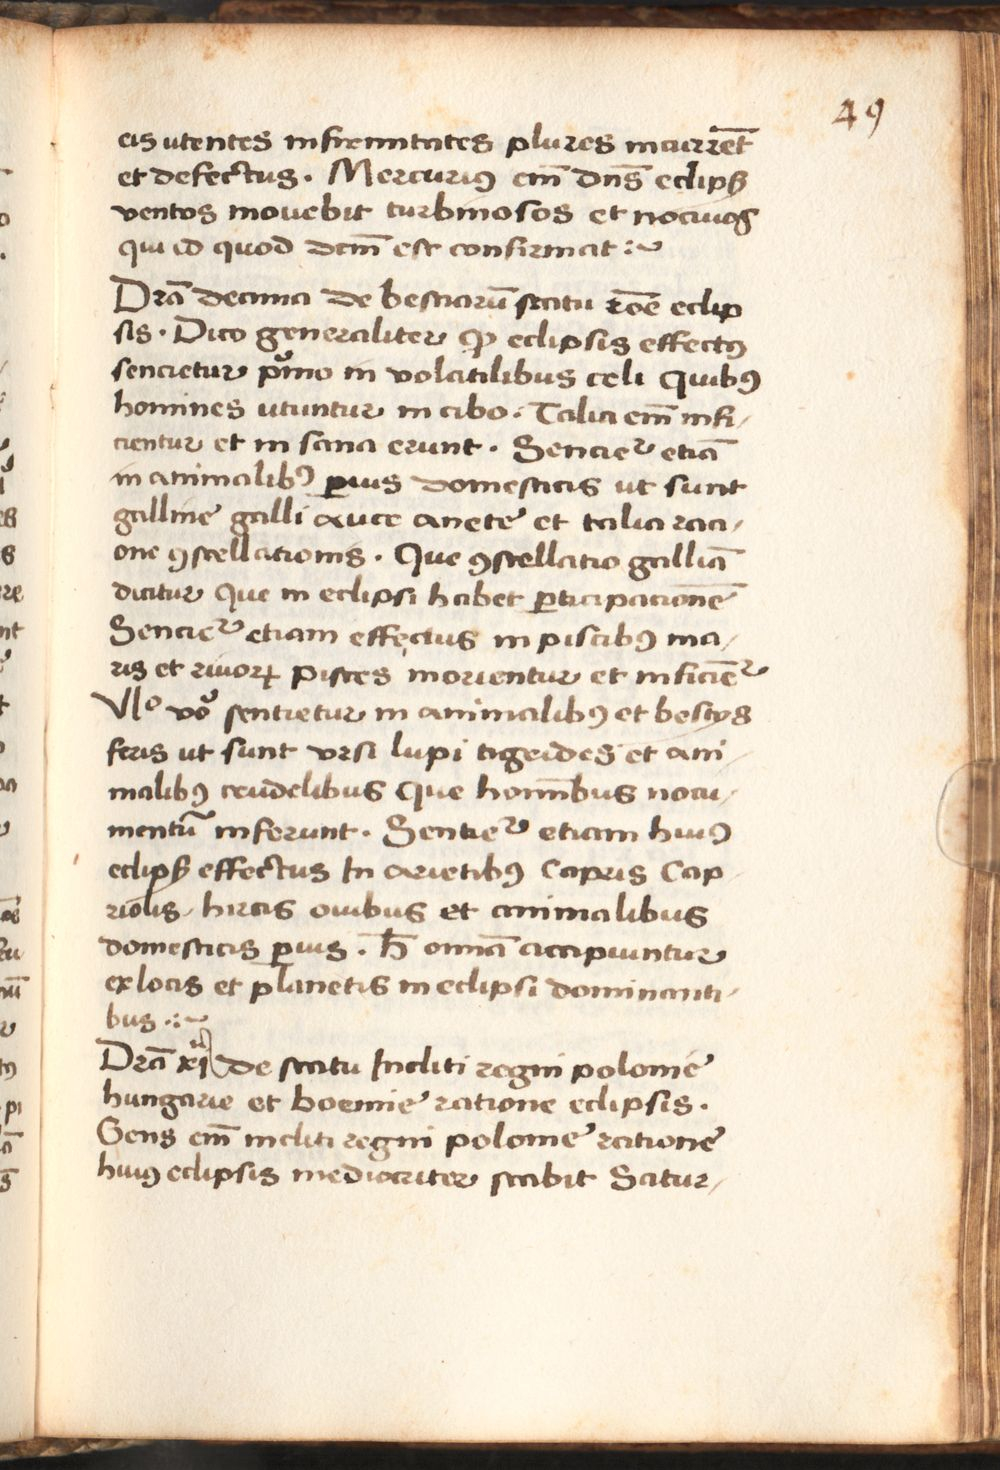 49
eis utentes infirmitates plures incurrēt
et defectus. Mercuriꝰ em̄ dn̄s eclipsꝭ
ventos movebit turbinosos et nocivos
qui id quod dcm̄ est confirmat :~
Dr̄a decima de bestiarū statu rōe eclip
sis. Dico generaliter ꝙ eclipsis effectꝰ
sencietur p̊mo in volatilibus celi Quibꝰ
homines utuntur in cibo. Talia em̄ infi/
cientur et in sana erunt. Sencieᷣ etiā
in animalibꝰ ꝑvis domesticis ut sunt
galline galli auce anete et talia raci/
one ꝯstellationis. Que ꝯstellatio galliā
dicitur Que in eclipsi habet ꝑticipacionē
Sencieᷣ etiam effectus in piscibꝰ ma/
ris et rivoꝝ pisces morientur et inficiēᷣ
Ulº vº sentietur in animalibꝰ et bestys
feris ut sunt ursi lupi tigrides et ani/
malibꝰ crudelibus Que hominibus nocu/
mentū inferunt. Sentieᷣ etiam huiꝰ
eclipsꝭ effectus In arietibꝰ Capris Cap
riolis hircis ovibus et animalibus
domesticis ꝑvis. H̄ omīa accipiuntur
ex locis et planetis in eclipsi dominanti/
bus :~
Dr̄a xi de statu Incliti regni polonie
hungarie et boemie ratione eclipsis.
Gens em̄ incliti regni polonie ratione
huiꝰ eclipsis mediocriter stabit Satur/